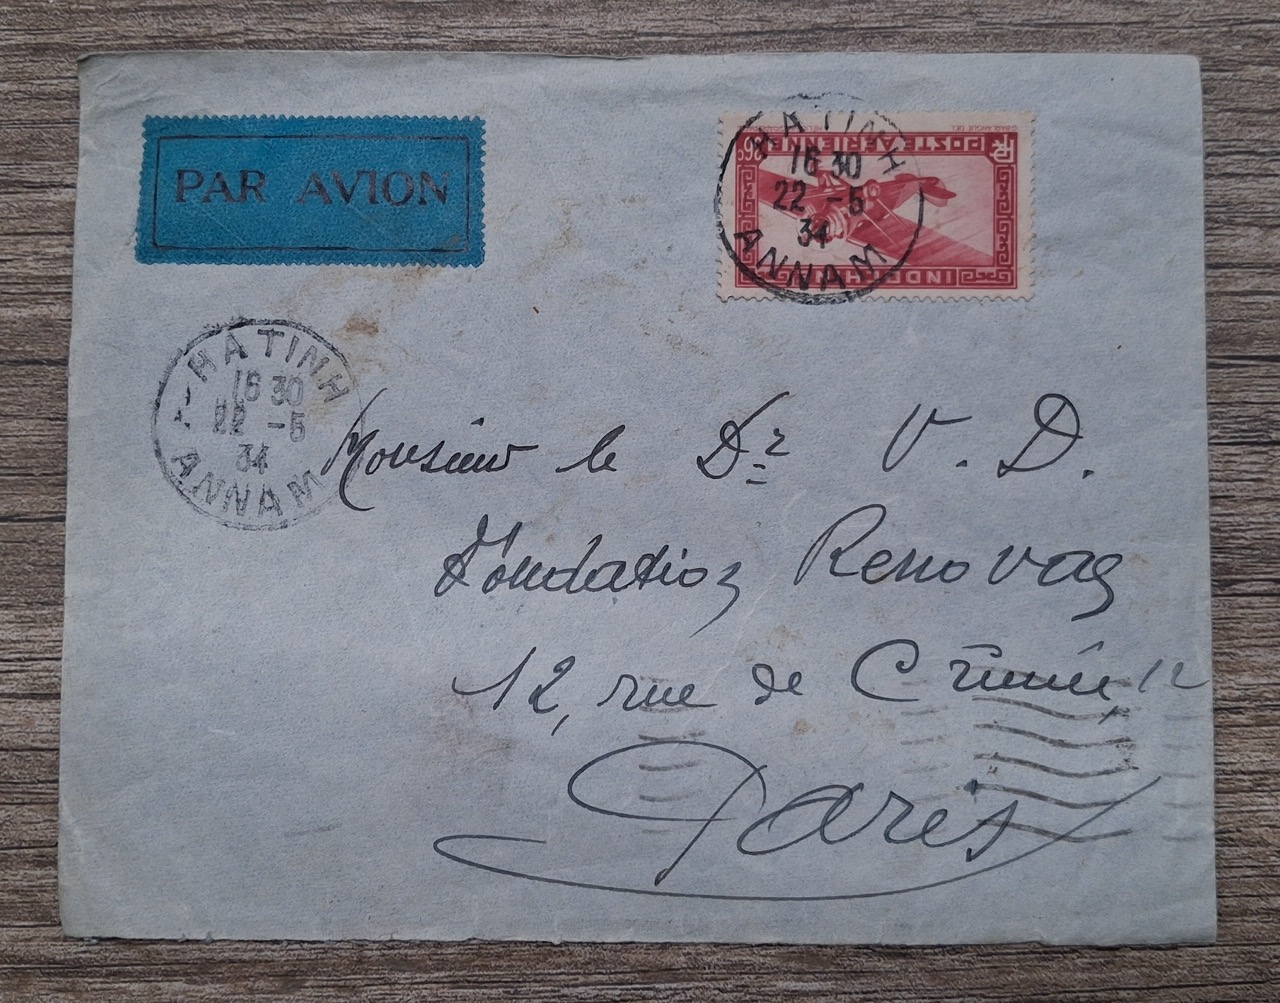 PAR AVION
HATINH
16 30
22 -5
34
ANNAM
POSTE AERIENNE
RF
INDOCHINE
HATINH
16 30
22 -5
34
ANNAM
Monsieur le Dr V. D.
Fondation Renovag
12, rue de Crimée 12
Paris